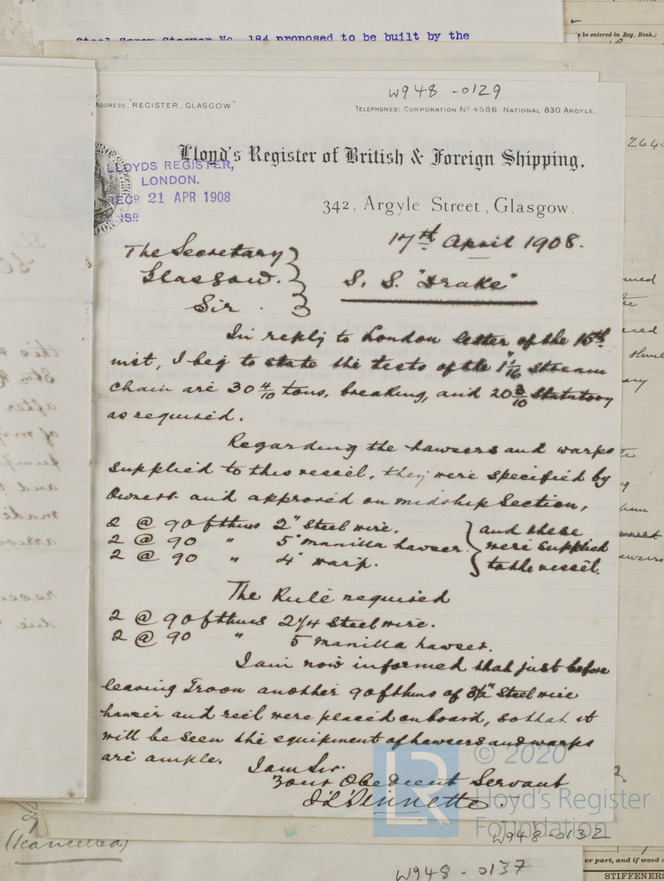 Steel Screw Steamer No. 184 proposed to be built by the
be entered in Reg. Book.)
W948 - 0129
ADDRESS, "REGISTER, GLASGOW"
TELEPHONES: CORPORATION No 4586. NATIONAL 830 ARGYLE.
Lloyd's Register of British & Foreign Shipping,
LLOYDS REGISTER,
LONDON.
REC'D 21 APR 1908
342, Argyle Street, Glasgow.
17th April 1908.
The Secretary
Glasgow.
Sir.
S. S. "Drake"
In reply to London letter of the 15th
inst, I beg to state the tests of the 1 1/16" Stream
Chain are 30 4/10 tons, breaking, and 20 3/10 Statutory
as required.
Regarding the hawsers and warps
supplied to this vessel, they were specified by
Owners and approved on midship Section,
2 @ 90 fthms 2" Steel wire.
2 @ 90 " 5" manilla hawser.
2 @ 90 " 4" warp.
and these
were supplied
to the vessel.
The Rule required
2 @ 90 fthms 2 1/4 Steel wire.
2 @ 90 " 5 manilla hawser.
I am now informed that just before
leaving Troon another 90 fthms of 3 1/2" Steel wire
hawser and reel were placed on board, so that it
will be seen the equipment of hawsers and warps
are ample.
I am Sir.
Your Obedient Servant
© 2020
LR
Lloyd's Register
Foundation
W948-0132
(cancelled)
W948-0137
or part, and if wood
STIFFENERS